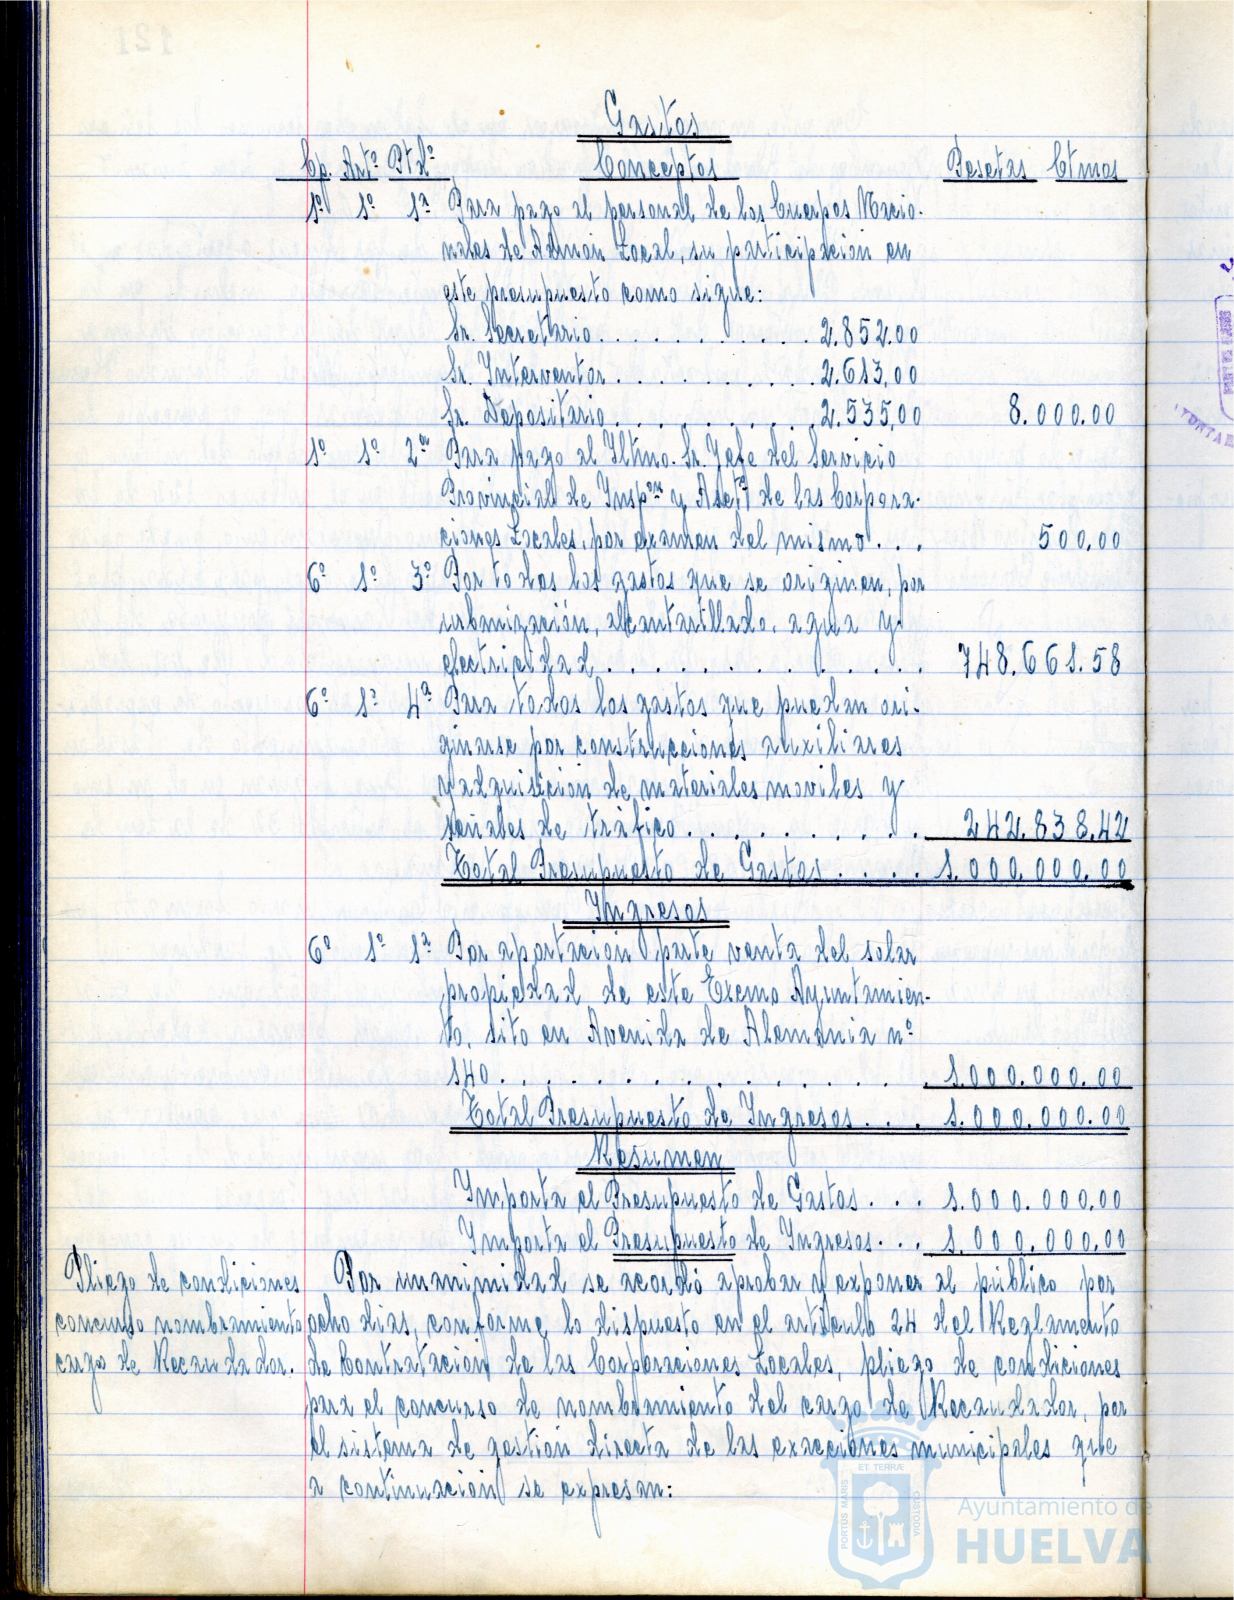 Gastos
Cp. Artº Ptdª Conceptos Pesetas Ctmos
1º 1º 1ª Para pago al personal de los Cuerpos Nacio-
nales de Admón Local, su participación en
este presupuesto como sigue:
Sr. Secretario. . . . . . . . . . . 2.852,00
Sr. Interventor . . . . . . . . . . 2.613,00
Sr. Depositario . . . . . . . . . . 2.535,00 8.000.00
1º 1º 2ª Para pago al Iltmo. Sr. Jefe del Servicio
Provincial de Inspón y Asetº de las Corpora-
ciones Locales, por examen del mismo . . . 500,00
6º 1º 3º Por todos los gastos que se originen, por
urbanización, alcantarillado, agua y
electricidad . . . . . . . . . . . 748.661.58
6º 1º 4ª Para todos los gastos que puedan ori-
ginarse por construcciones auxiliares
y adquisición de materiales moviles y
señales de tráfico . . . . . . . . . 242.838.42
Total Presupuesto de Gastos . . . . 1.000.000.00
Ingresos
6º 1º 1ª Por aportación parte venta del solar
propiedad de este Excmo Ayuntamien-
to, sito en Avenida de Alemania nº
140. . . . . . . . . . . . . . . . 1.000.000.00
Total Presupuesto de Ingresos . . . 1.000.000.00
Resumen
Importa el Presupuesto de Gastos . . . 1.000.000.00
Importa el Presupuesto de Ingresos . . . 1.000.000.00
Pliego de condiciones
concurso nombramiento
cargo de Recaudador.
Por unanimidad se acordó aprobar y exponer al público por
ocho días, conforme lo dispuesto en el artículo 24 del Reglamento
de Contratación de las Corporaciones Locales, pliego de condiciones
para el concurso de nombramiento del cargo de Recaudador, por
el sistema de gestión directa de las exacciones municipales que
a continuación se expresan:
PORTUS MARIS ET TERRÆ CUSTODIA
Ayuntamiento de
HUELVA